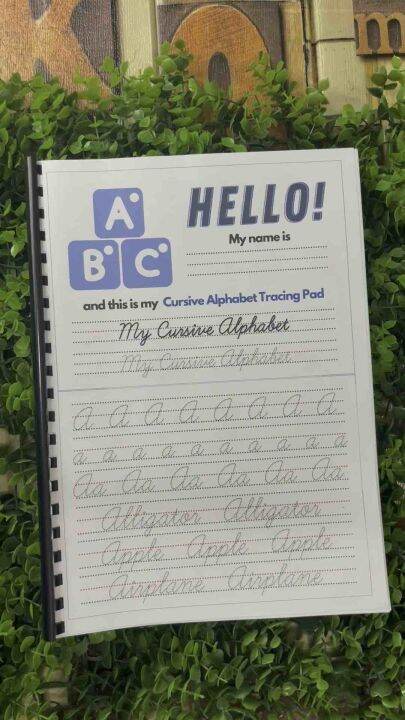 K O m
A
B C
HELLO!
My name is
and this is my Cursive Alphabet Tracing Pad
My Cursive Alphabet
My Cursive Alphabet
A A A A A A A A
a a a a a a a a a a
Aa Aa Aa Aa Aa Aa
Alligator Alligator
Apple Apple Apple
Airplane Airplane